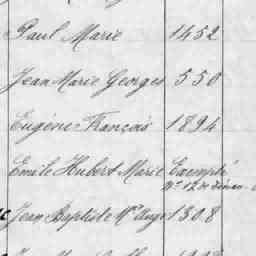 Paul Marie 1452
Jean Marie Georges 550
Eugène François 1894
Emile Hubert Marie Exempté
Jean Baptiste Mie Auge 1308